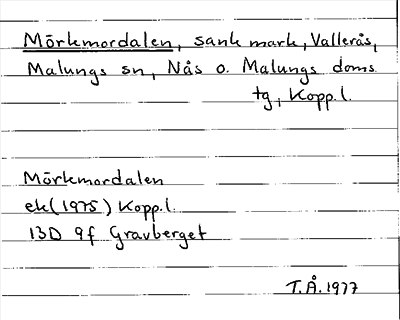 Mörkmordalen, sank mark, Vallerås,
Malungs sn, Nås o. Malungs doms
tg, Kopp.l.
Mörkmordalen
ek(1975) Kopp.l.
13D 9f Gravberget
T.Å.1977